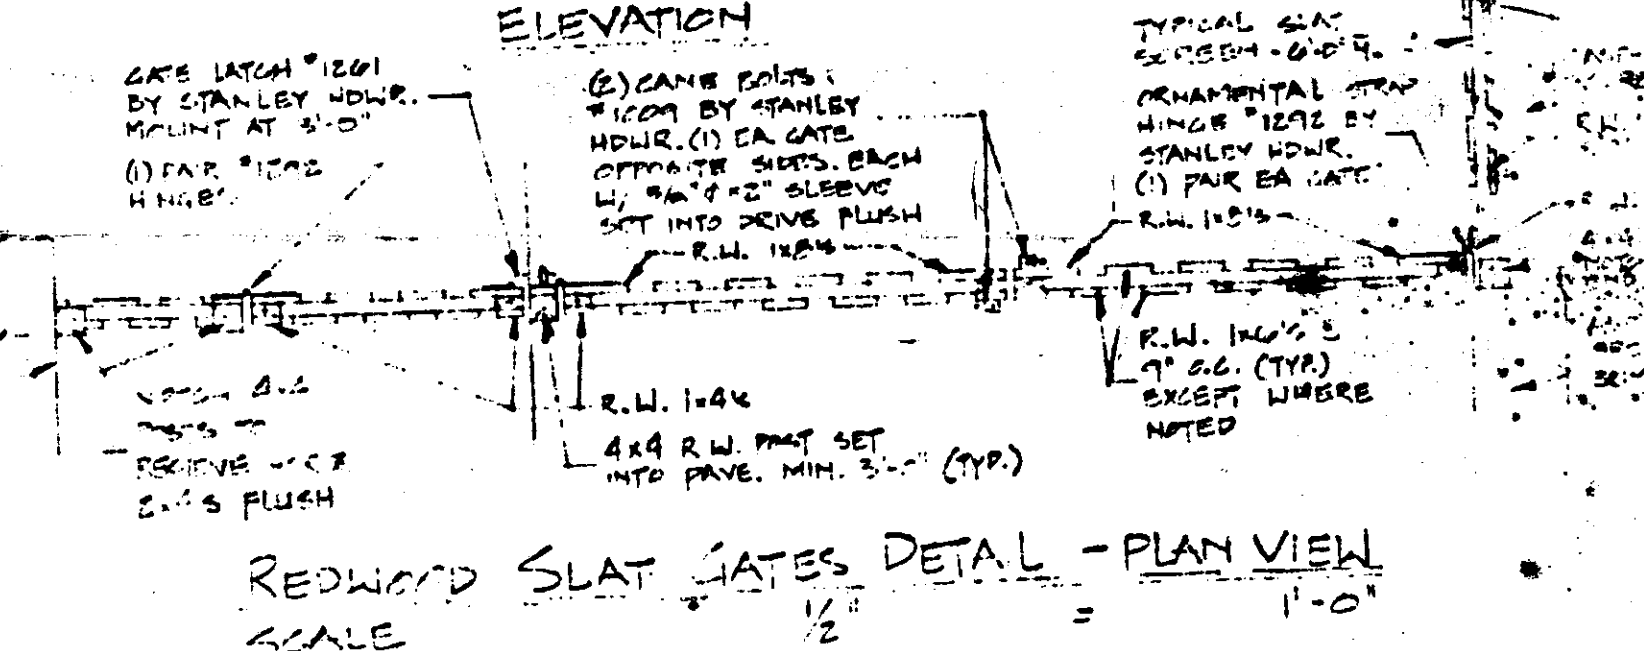 ELEVATION
GATE LATCH #1261
BY STANLEY HDWR.
MOUNT AT 3'-0"
(1) PAIR #1292
HINGES
(2) CANE BOLTS
#1009 BY STANLEY
HDWR. (1) EA. GATE
OPPOSITE SIDES. EACH
SLEEVE
SET INTO DRIVE FLUSH
R.W. 1x8's
TYPICAL SLAT
SCREEN - 6'-0" H.
ORNAMENTAL STRAP
HINGE #1292 BY
STANLEY HDWR.
(1) PAIR EA GATE
R.W. 1x8's
NOTCH 4x4
POSTS TO
RECIEVE
2x4's FLUSH
R.W. 1x4's
4x4 R.W. POST SET
INTO PAVE. MIN. 3'-0" (TYP.)
R.W. 1x6's
9" O.C. (TYP.)
EXCEPT WHERE
NOTED
REDWOOD SLAT GATES DETAIL - PLAN VIEW
SCALE 1/2" = 1'-0"